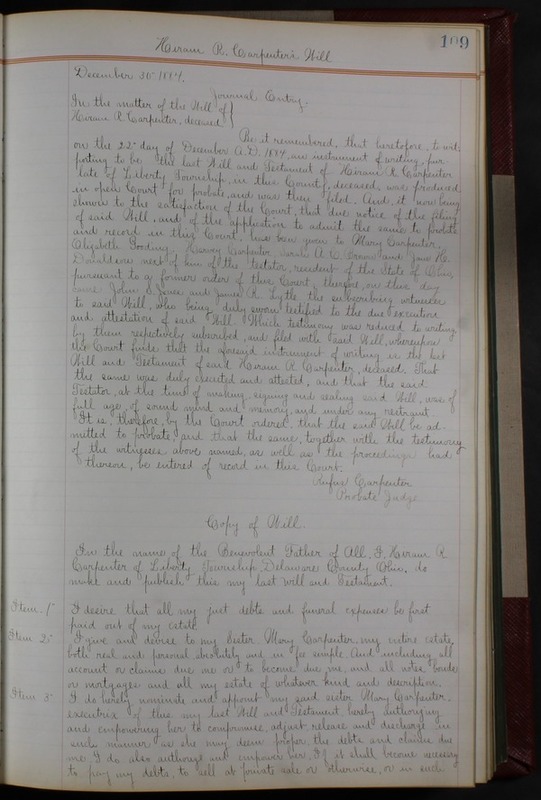 109
Hiram R. Carpenter's Will
December 30" 1884.
Journal Entry-
In the matter of the Will of
Hiram R. Carpenter, deceased
Be it remembered, that heretofore, to wit:
on the 22" day of December A.D. 1884, an instrument of writing, pur-
porting to be the last Will and Testament of Hiram R. Carpenter
late of Liberty Township, in this County, deceased, was produced
in open Court for probate, and was then filed. And, it now being
shown to the satisfaction of the Court, that due notice of the filing
of said Will, and of the application to admit the same to probate
and record in this Court, has been given to Mary Carpenter,
Elizabeth Gooding, Harvey Carpenter, Sarah A. C. and Jane H.
Donaldson next of kin of the testator, resident of the State of Ohio,
pursuant to a former orders of this Court, thereon, on this day
came John S. Jones and James R. Lytle the subscribing witnesses
to said Will, who being duly sworn testified to the due execution
and attestation of said Will. Which testimony was reduced to writing
by them respectively subscribed, and filed with said Will, whereupon
the Court finds that the aforesaid instrument of writing is the last
Will and Testament of said Hiram R. Carpenter, deceased. That
the same was duly executed and attested, and that the said
Testator, at the time of making, signing and sealing said Will, was of
full age, of sound mind and memory, and under any restraint.
It is, therefore, by the Court ordered, that the said Will be ad-
mitted to probate, and that the same, together with the testimony
of the witnesses above named, as well as the proceedings had
thereon, be entered of record in this Court.
Rufus Carpenter
Probate Judge
Copy of Will.
In the name of the Benevolent Father of All, I, Hiram R.
Carpenter of Liberty Township, Delaware County Ohio, do
make and publish this my last will and Testament.
Item. 1" I desire that all my just debts and funeral expenses be first
paid out of my estate.
Item 2" I give and devise to my sister Mary Carpenter, my entire estate,
both real and personal absolutely and in fee simple. And including all
account or claims due me or to become due me, and all notes, bonds
or mortgages and all my estate of whatever kind and description.
Item 3" I do hereby nominate and appoint my said sister Mary Carpenter.
executrix of this my last Will and Testament hereby authorizing
and empowering her to compromise, adjust release and discharge in
such manner as she may deem proper the debts and claims due
me. I do also authorize and empower her, if it shall become necessary
to pay my debts, to sell at private sale or otherwise, or in such